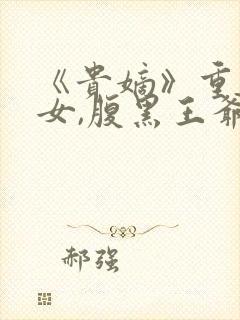 《贵嫡》重
女,腹黑王爷
郝强